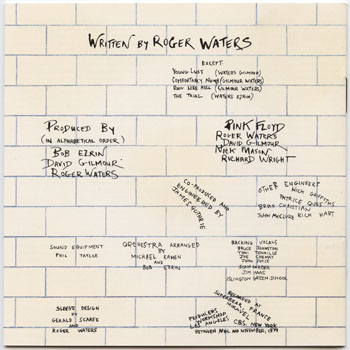 WRITTEN BY ROGER WATERS
EXCEPT
YOUNG LUST (WATERS GILMOUR)
COMFORTABLY NUMB (GILMOUR WATERS)
RUN LIKE HELL (GILMOUR WATERS)
THE TRIAL (WATERS EZRIN)
PRODUCED BY
(IN ALPHABETICAL ORDER)
BOB EZRIN
DAVID GILMOUR
ROGER WATERS
PINK FLOYD
ROGER WATERS
DAVID GILMOUR
NICK MASON
RICHARD WRIGHT
CO-PRODUCED AND
ENGINEERED BY
JAMES GUTHRIE
OTHER ENGINEERS
NICK GRIFFITHS
PATRICE QUEF
BRIAN CHRISTIAN
JOHN McCLURE RICK HART
SOUND EQUIPMENT
PHIL TAYLOR
ORCHESTRA ARRANGED
BY
MICHAEL KAMEN
AND
BOB EZRIN
BACKING VOCALS
BRUCE JOHNSTON
TONI TENNILLE
JOE CHEMAY
JOHN JOYCE
STAN FARBER
JIM HAAS
ISLINGTON GREEN SCHOOL
SLEEVE DESIGN
BY
GERALD SCARFE
AND
ROGER WATERS
RECORDED AT
SUPERBEAR, FRANCE
MIRAVAL
CBS. NEW YORK
PRODUCERS
WORKSHOP
LOS ANGELES
BETWEEN APRIL AND NOVEMBER, 1979